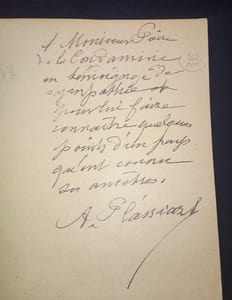 A Monsieur
de la Condamine
en témoignage de
sympathie et
pour lui faire
connaître quelques
points d'un pays
qu'ont connu
ses ancêtres.
A.